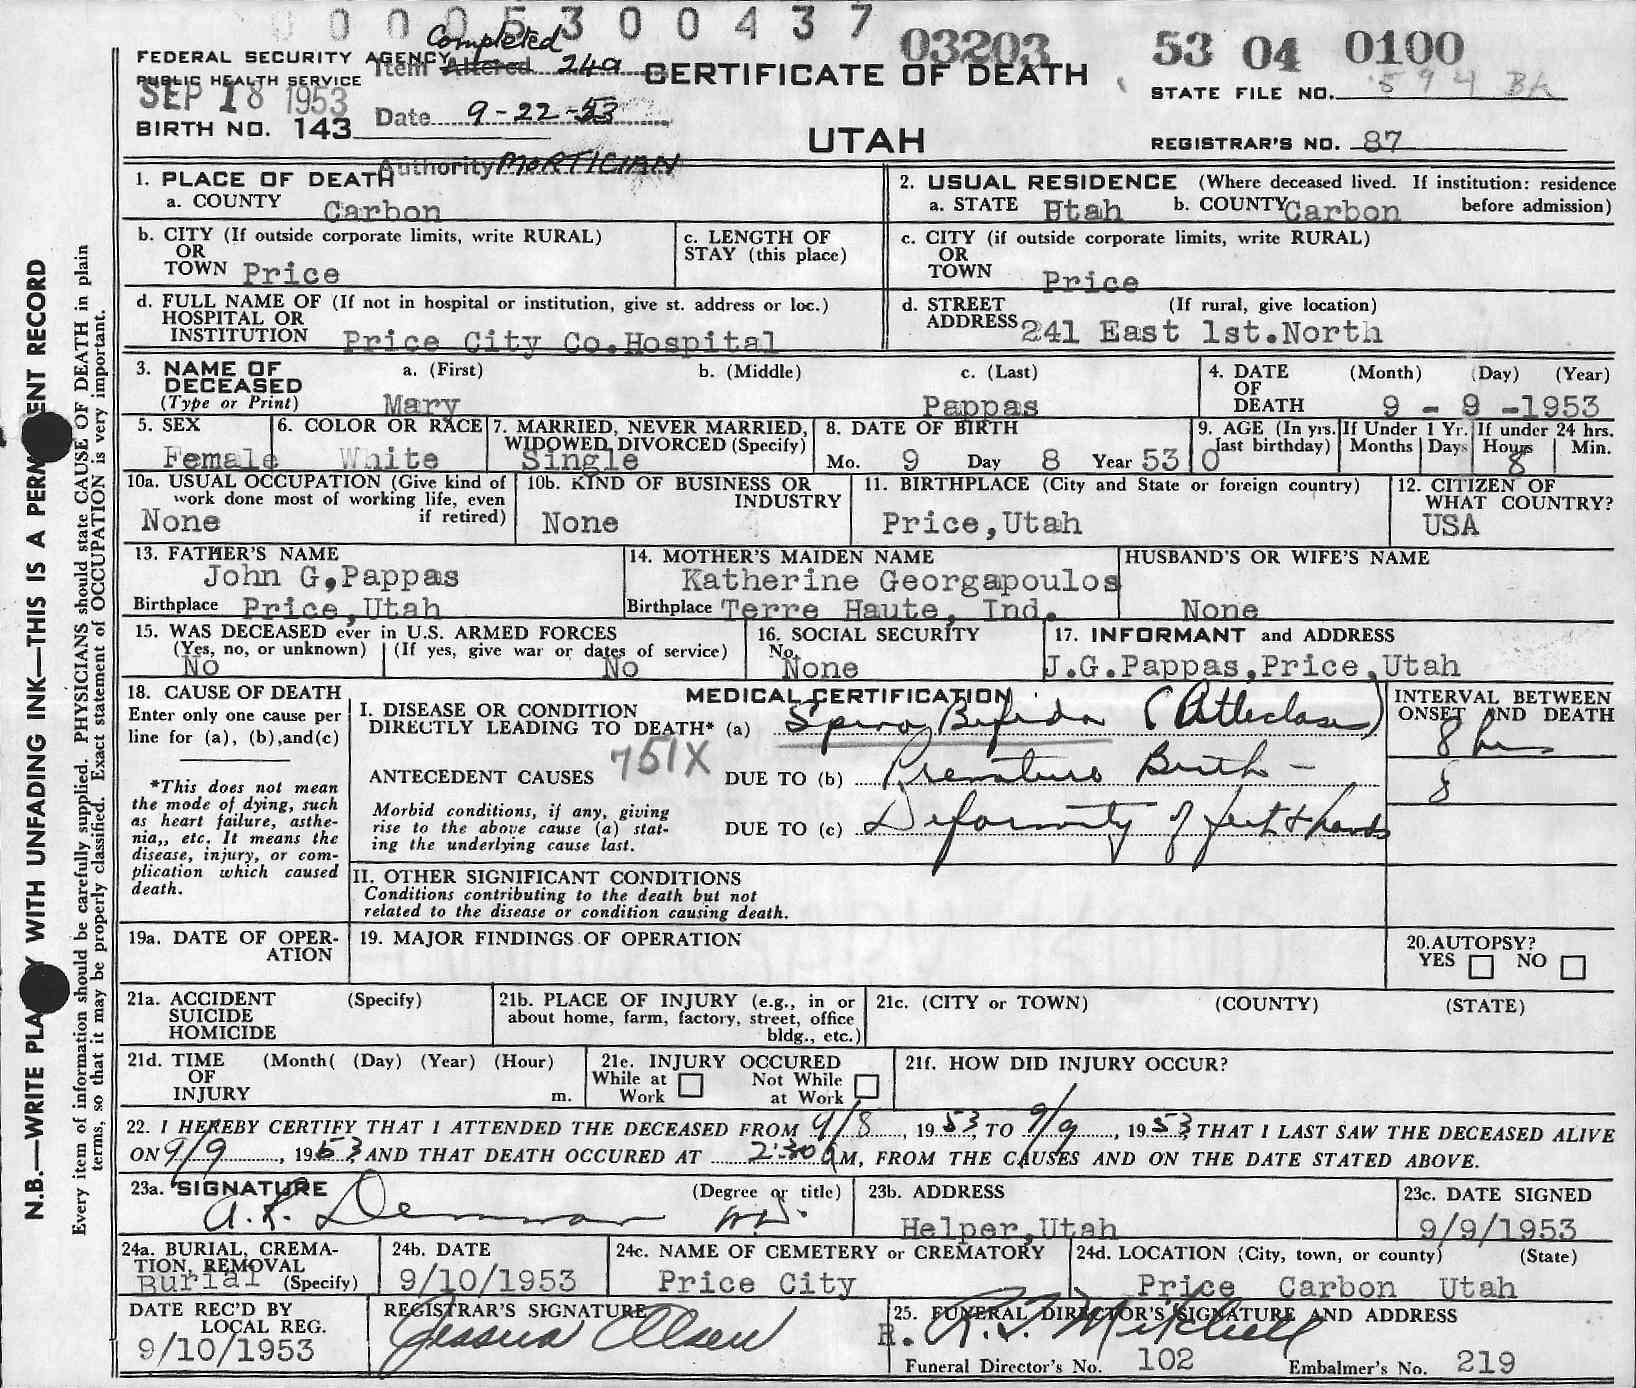 0 0 0 0 5 3 0 0 4 3 7
03203 53 04 0100
FEDERAL SECURITY AGENCY
PUBLIC HEALTH SERVICE
SEP 18 1953
BIRTH NO. 143
Completed
Item Altered 24a
Date 9-22-53
Authority MORTICIAN
CERTIFICATE OF DEATH
UTAH
STATE FILE NO. 594 BA
REGISTRAR'S NO. 87
1. PLACE OF DEATH
a. COUNTY Carbon
2. USUAL RESIDENCE (Where deceased lived. If institution: residence before admission)
a. STATE Utah b. COUNTY Carbon
b. CITY (If outside corporate limits, write RURAL)
OR
TOWN Price
c. LENGTH OF
STAY (this place)
c. CITY (if outside corporate limits, write RURAL)
OR
TOWN Price
d. FULL NAME OF (If not in hospital or institution, give st. address or loc.)
HOSPITAL OR
INSTITUTION Price City Co.Hospital
d. STREET (If rural, give location)
ADDRESS 241 East 1st.North
3. NAME OF DECEASED (Type or Print)
a. (First) b. (Middle) c. (Last)
Mary Pappas
4. DATE OF DEATH (Month) (Day) (Year)
9 - 9 -1953
5. SEX
Female
6. COLOR OR RACE
White
7. MARRIED, NEVER MARRIED,
WIDOWED, DIVORCED (Specify)
Single
8. DATE OF BIRTH
Mo. 9 Day 8 Year 53
9. AGE (In yrs. last birthday)
0
If Under 1 Yr.
Months Days
If under 24 hrs.
Hours Min.
8
10a. USUAL OCCUPATION (Give kind of
work done most of working life, even
if retired)
None
10b. KIND OF BUSINESS OR
INDUSTRY
None
11. BIRTHPLACE (City and State or foreign country)
Price,Utah
12. CITIZEN OF
WHAT COUNTRY?
USA
13. FATHER'S NAME
John G,Pappas
Birthplace Price,Utah
14. MOTHER'S MAIDEN NAME
Katherine Georgapoulos
Birthplace Terre Haute, Ind.
HUSBAND'S OR WIFE'S NAME
None
15. WAS DECEASED ever in U.S. ARMED FORCES
(Yes, no, or unknown) (If yes, give war or dates of service)
No No
16. SOCIAL SECURITY
No.
None
17. INFORMANT and ADDRESS
J.G.Pappas,Price,Utah
18. CAUSE OF DEATH
Enter only one cause per
line for (a), (b),and(c)
*This does not mean
the mode of dying, such
as heart failure, asthe-
nia,, etc. It means the
disease, injury, or com-
plication which caused
death.
MEDICAL CERTIFICATION
I. DISEASE OR CONDITION
DIRECTLY LEADING TO DEATH* (a) Spina Bifida
751X
ANTECEDENT CAUSES DUE TO (b) Premature Birth -
Morbid conditions, if any, giving
rise to the above cause (a) stat-
ing the underlying cause last.
DUE TO (c) Deformity of feet & hands
INTERVAL BETWEEN
ONSET AND DEATH
8 hrs
8
II. OTHER SIGNIFICANT CONDITIONS
Conditions contributing to the death but not
related to the disease or condition causing death.
19a. DATE OF OPER-
ATION
19. MAJOR FINDINGS OF OPERATION
20.AUTOPSY?
YES NO
21a. ACCIDENT (Specify)
SUICIDE
HOMICIDE
21b. PLACE OF INJURY (e.g., in or
about home, farm, factory, street, office
bldg., etc.)
21c. (CITY or TOWN) (COUNTY) (STATE)
21d. TIME (Month( (Day) (Year) (Hour)
OF
INJURY m.
21e. INJURY OCCURED
While at Work Not While at Work
21f. HOW DID INJURY OCCUR?
22. I HEREBY CERTIFY THAT I ATTENDED THE DECEASED FROM 9/8, 1953, TO 9/9, 1953, THAT I LAST SAW THE DECEASED ALIVE
ON 9/9, 1953, AND THAT DEATH OCCURED AT 2:30 AM, FROM THE CAUSES AND ON THE DATE STATED ABOVE.
23a. SIGNATURE (Degree or title)
A.R. Demman M.D.
23b. ADDRESS
Helper,Utah
23c. DATE SIGNED
9/9/1953
24a. BURIAL, CREMA-
TION, REMOVAL
Burial (Specify)
24b. DATE
9/10/1953
24c. NAME OF CEMETERY or CREMATORY
Price City
24d. LOCATION (City, town, or county) (State)
Price Carbon Utah
DATE REC'D BY
LOCAL REG.
9/10/1953
REGISTRAR'S SIGNATURE
Olsen
25. FUNERAL DIRECTOR'S SIGNATURE AND ADDRESS
R. Mitchell
Funeral Director's No. 102 Embalmer's No. 219
N.B.—WRITE PLA Y WITH UNFADING INK—THIS IS A PERM ENT RECORD
Every item of information should be carefully supplied. PHYSICIANS should state CAUSE OF DEATH in plain
terms, so that it may be properly classified. Exact statement of OCCUPATION is very important.